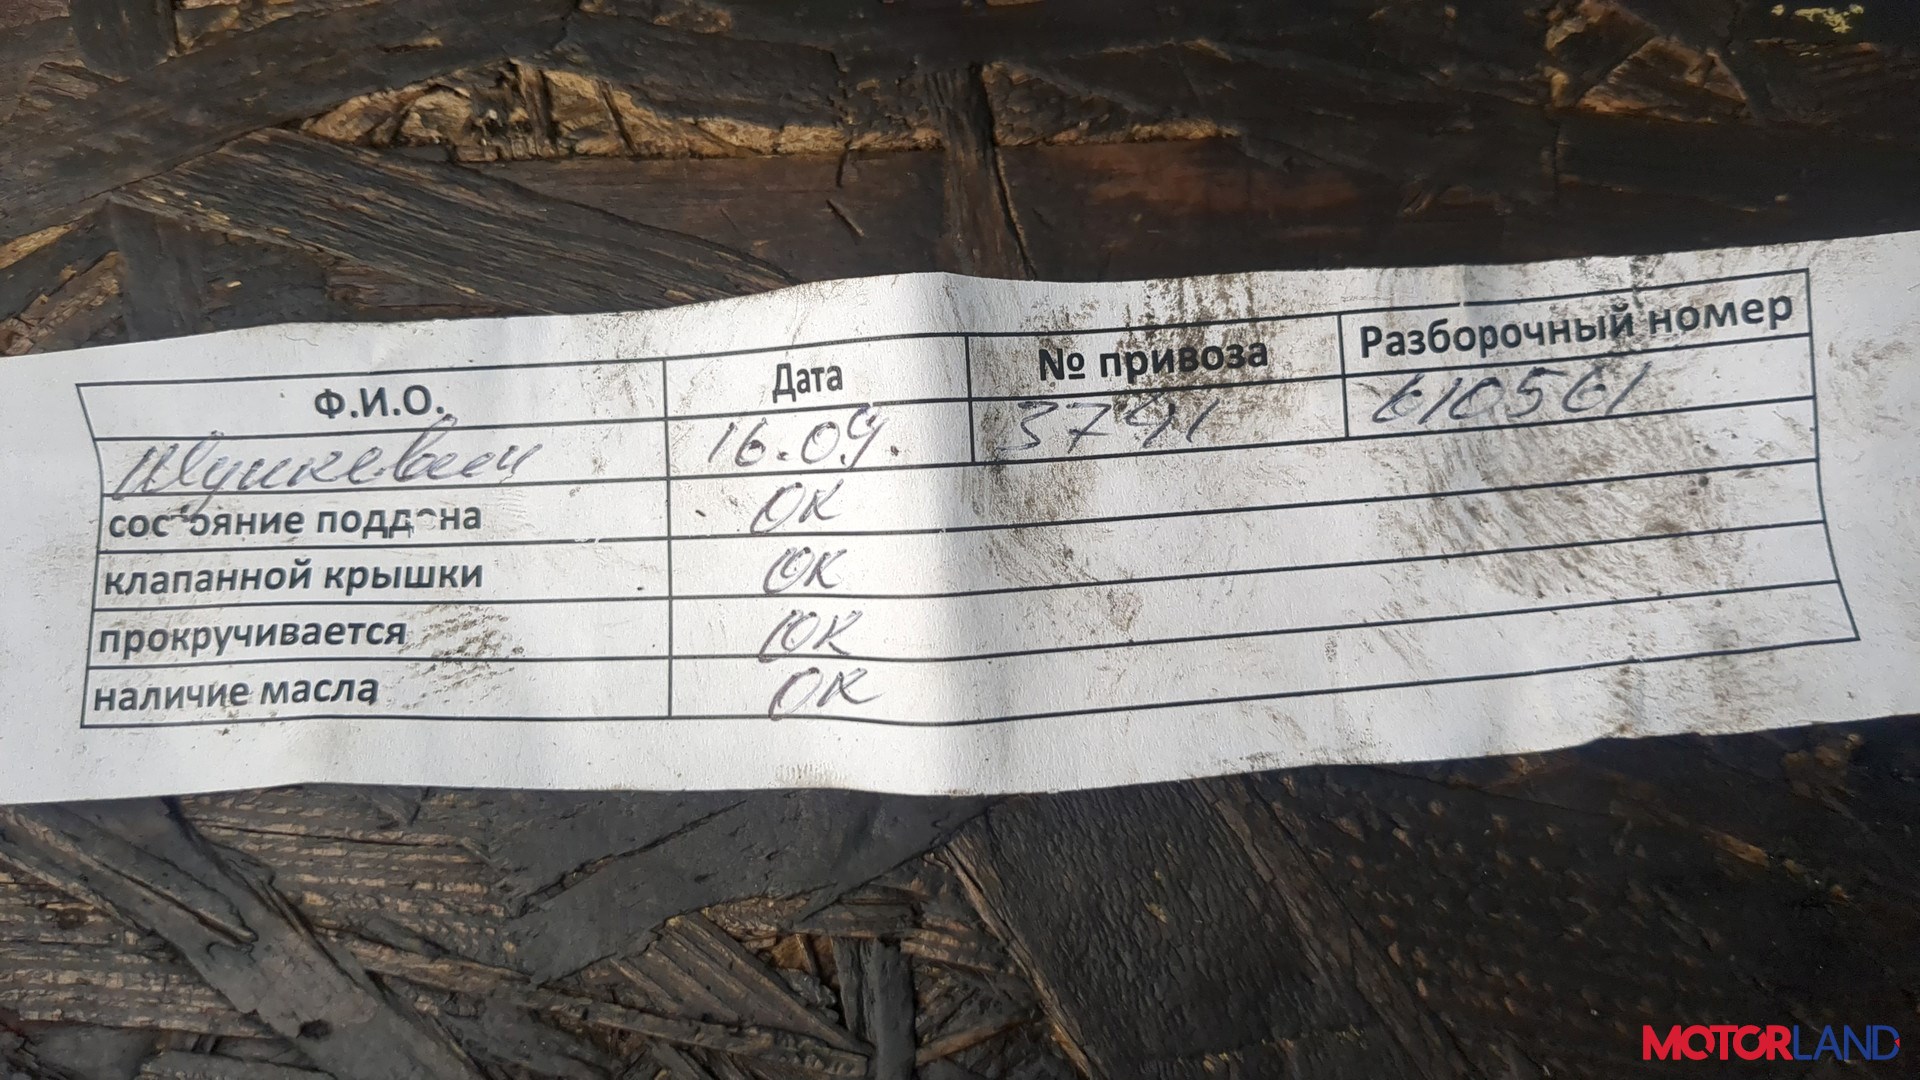 Ф.И.О. Дата № привоза Разборочный номер
Шункевич 16.09. 3791 610561
состояние поддона ОК
клапанной крышки ОК
прокручивается ОК
наличие масла ОК
MOTORLAND